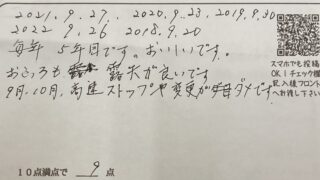 2021.9.27. 2020.9.23, 2019.9.30
2022 9.26 2018.9.20
毎年 5年目です。おいしいです。
おふろも 露天が良いです
9月、10月、高速ストップや変更がダメです
スマホでも投稿
OK!チェック欄
記入後フロント
へお渡し下さい
10点満点で 9 点